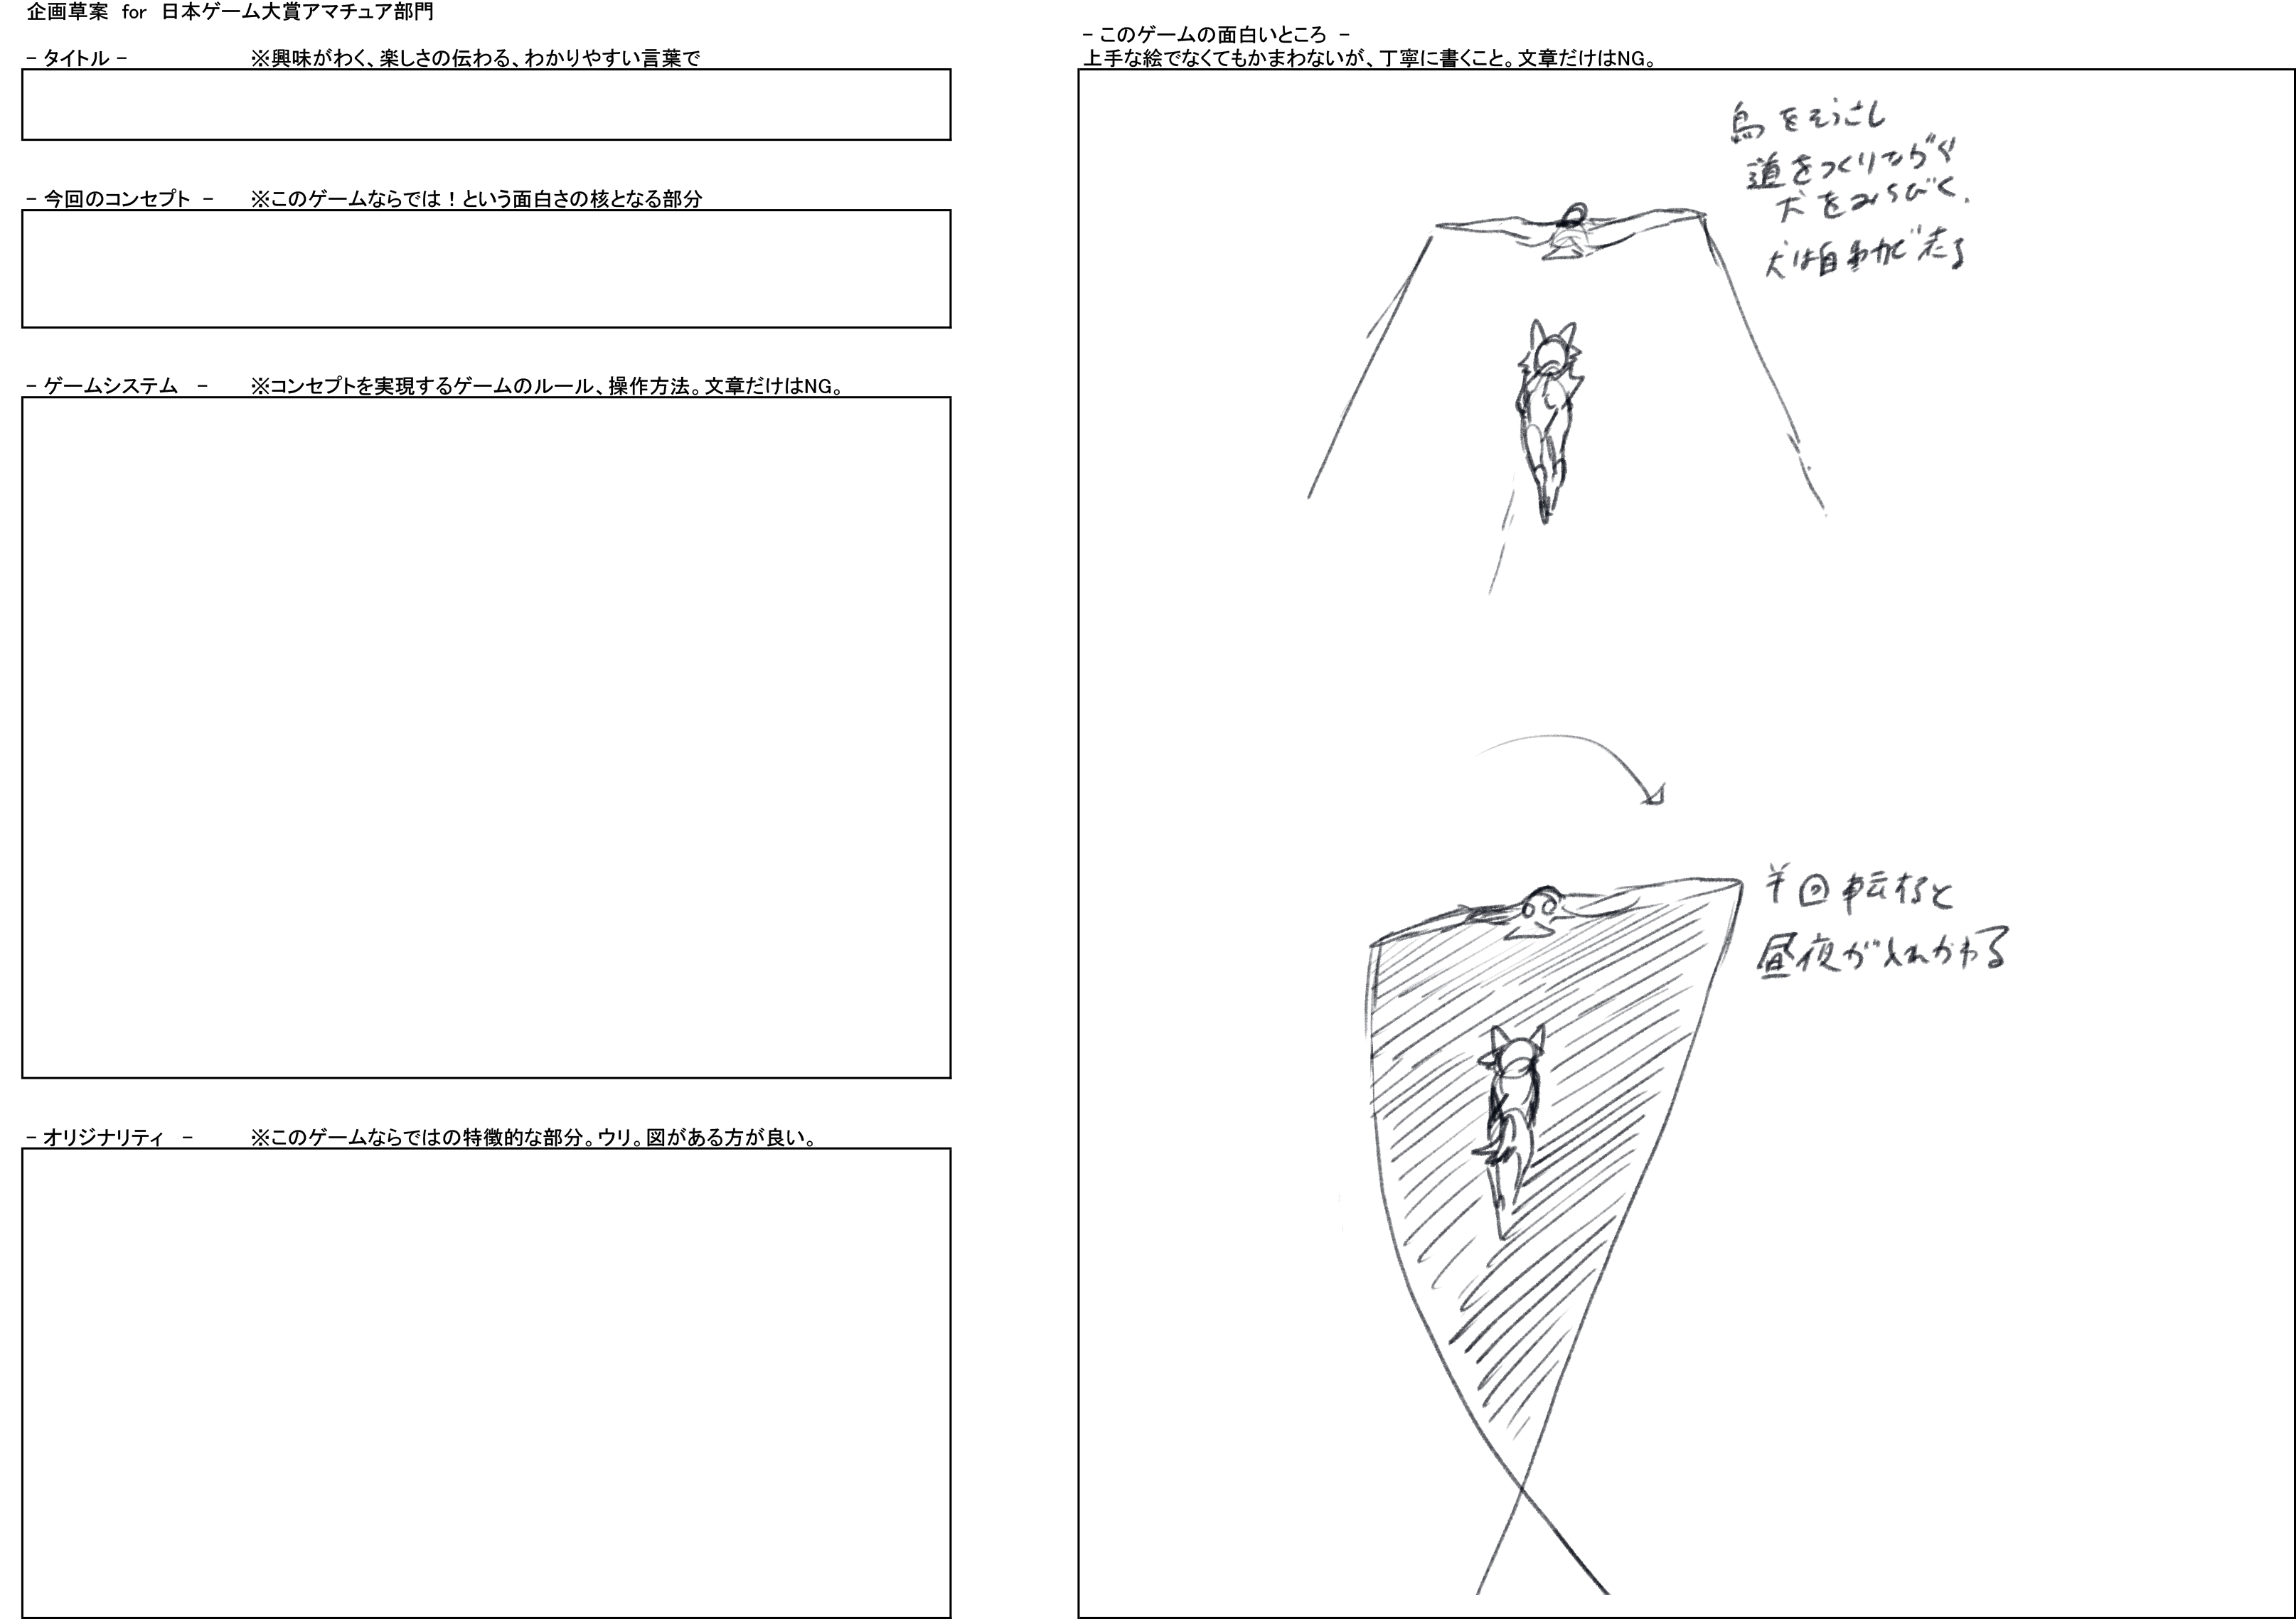 企画草案 for 日本ゲーム大賞アマチュア部門
- タイトル - ※興味がわく、楽しさの伝わる、わかりやすい言葉で
- 今回のコンセプト - ※このゲームならでは！という面白さの核となる部分
- ゲームシステム - ※コンセプトを実現するゲームのルール、操作方法。文章だけはNG。
- オリジナリティ - ※このゲームならではの特徴的な部分。ウリ。図がある方が良い。
- このゲームの面白いところ -
上手な絵でなくてもかまわないが、丁寧に書くこと。文章だけはNG。
鳥をそうさし
道をつくりながら
犬をみちびく.
犬は自動で走る
半回転すると
昼夜が入れかわる